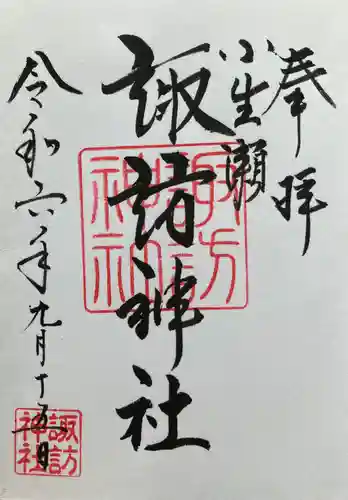 奉拝
小生瀬
諏訪神社
令和六年九月十五日
諏訪
神社
諏訪
神社